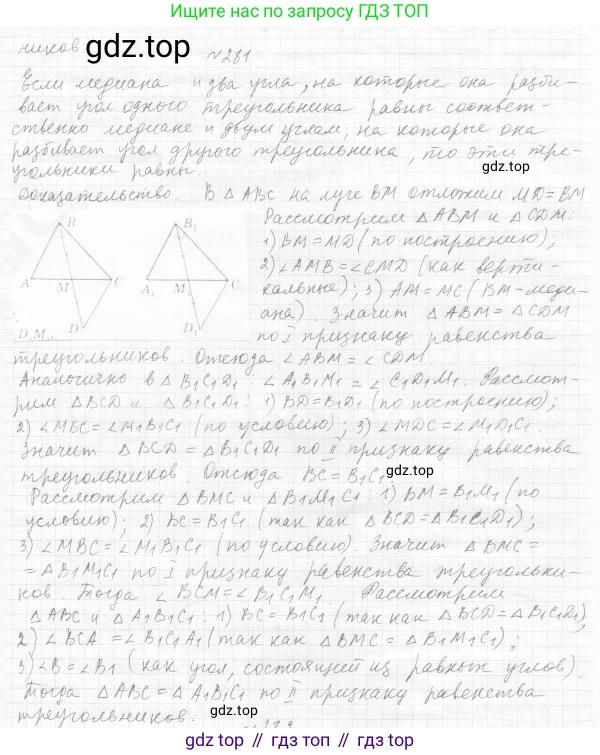 Ищите нас по запросу ГДЗ ТОП
ников gdz.top №281
Если медиана и два угла, на которые она разби-
вает угол одного треугольника равны соответ-
ственно медиане и двум углам, на которые она
разбивает угол другого треугольника, то эти тре-
угольники равны. gdz.top
Доказательство. В △ABC на луче BM отложим MD=BM
Рассмотрим △ABM и △CDM:
1) BM=MD (по построению);
2) ∠AMB=∠CMD (как верти-
кальные); 3) AM=MC (BM-меди-
ана). Значит △ABM=△CDM
по I признаку равенства
B B₁
A M C A₁ M₁ C₁
D D₁
треугольников. Отсюда ∠ABM=∠CDM.
Аналогично в △B₁C₁D₁: ∠A₁B₁M₁=∠C₁D₁M₁. Рассмот-
рим △BCD и △B₁C₁D₁: 1) BD=B₁D₁ (по построению);
2) ∠MBC=∠M₁B₁C₁ (по условию); 3) ∠MDC=∠M₁D₁C₁.
Значит △BCD=△B₁C₁D₁ по II признаку равенства
треугольников. Отсюда BC=B₁C₁ gdz.top
Рассмотрим △BMC и △B₁M₁C₁: 1) BM=B₁M₁ (по
условию); 2) BC=B₁C₁ (так как △BCD=△B₁C₁D₁);
3) ∠MBC=∠M₁B₁C₁ (по условию). Значит △BMC=
=△B₁M₁C₁ по I признаку равенства треугольни-
ков. Тогда ∠BCM=∠B₁C₁M₁. Рассмотрим
△ABC и △A₁B₁C₁: 1) BC=B₁C₁ (так как △BCD=△B₁C₁D₁),
2) ∠BCA=∠B₁C₁A₁ (так как △BMC=△B₁M₁C₁);
3) ∠B=∠B₁ (как угол, состоящей из равных углов).
Тогда △ABC=△A₁B₁C₁ по II признаку равенства
треугольников. gdz.top
gdz.top // gdz.top // gdz.top